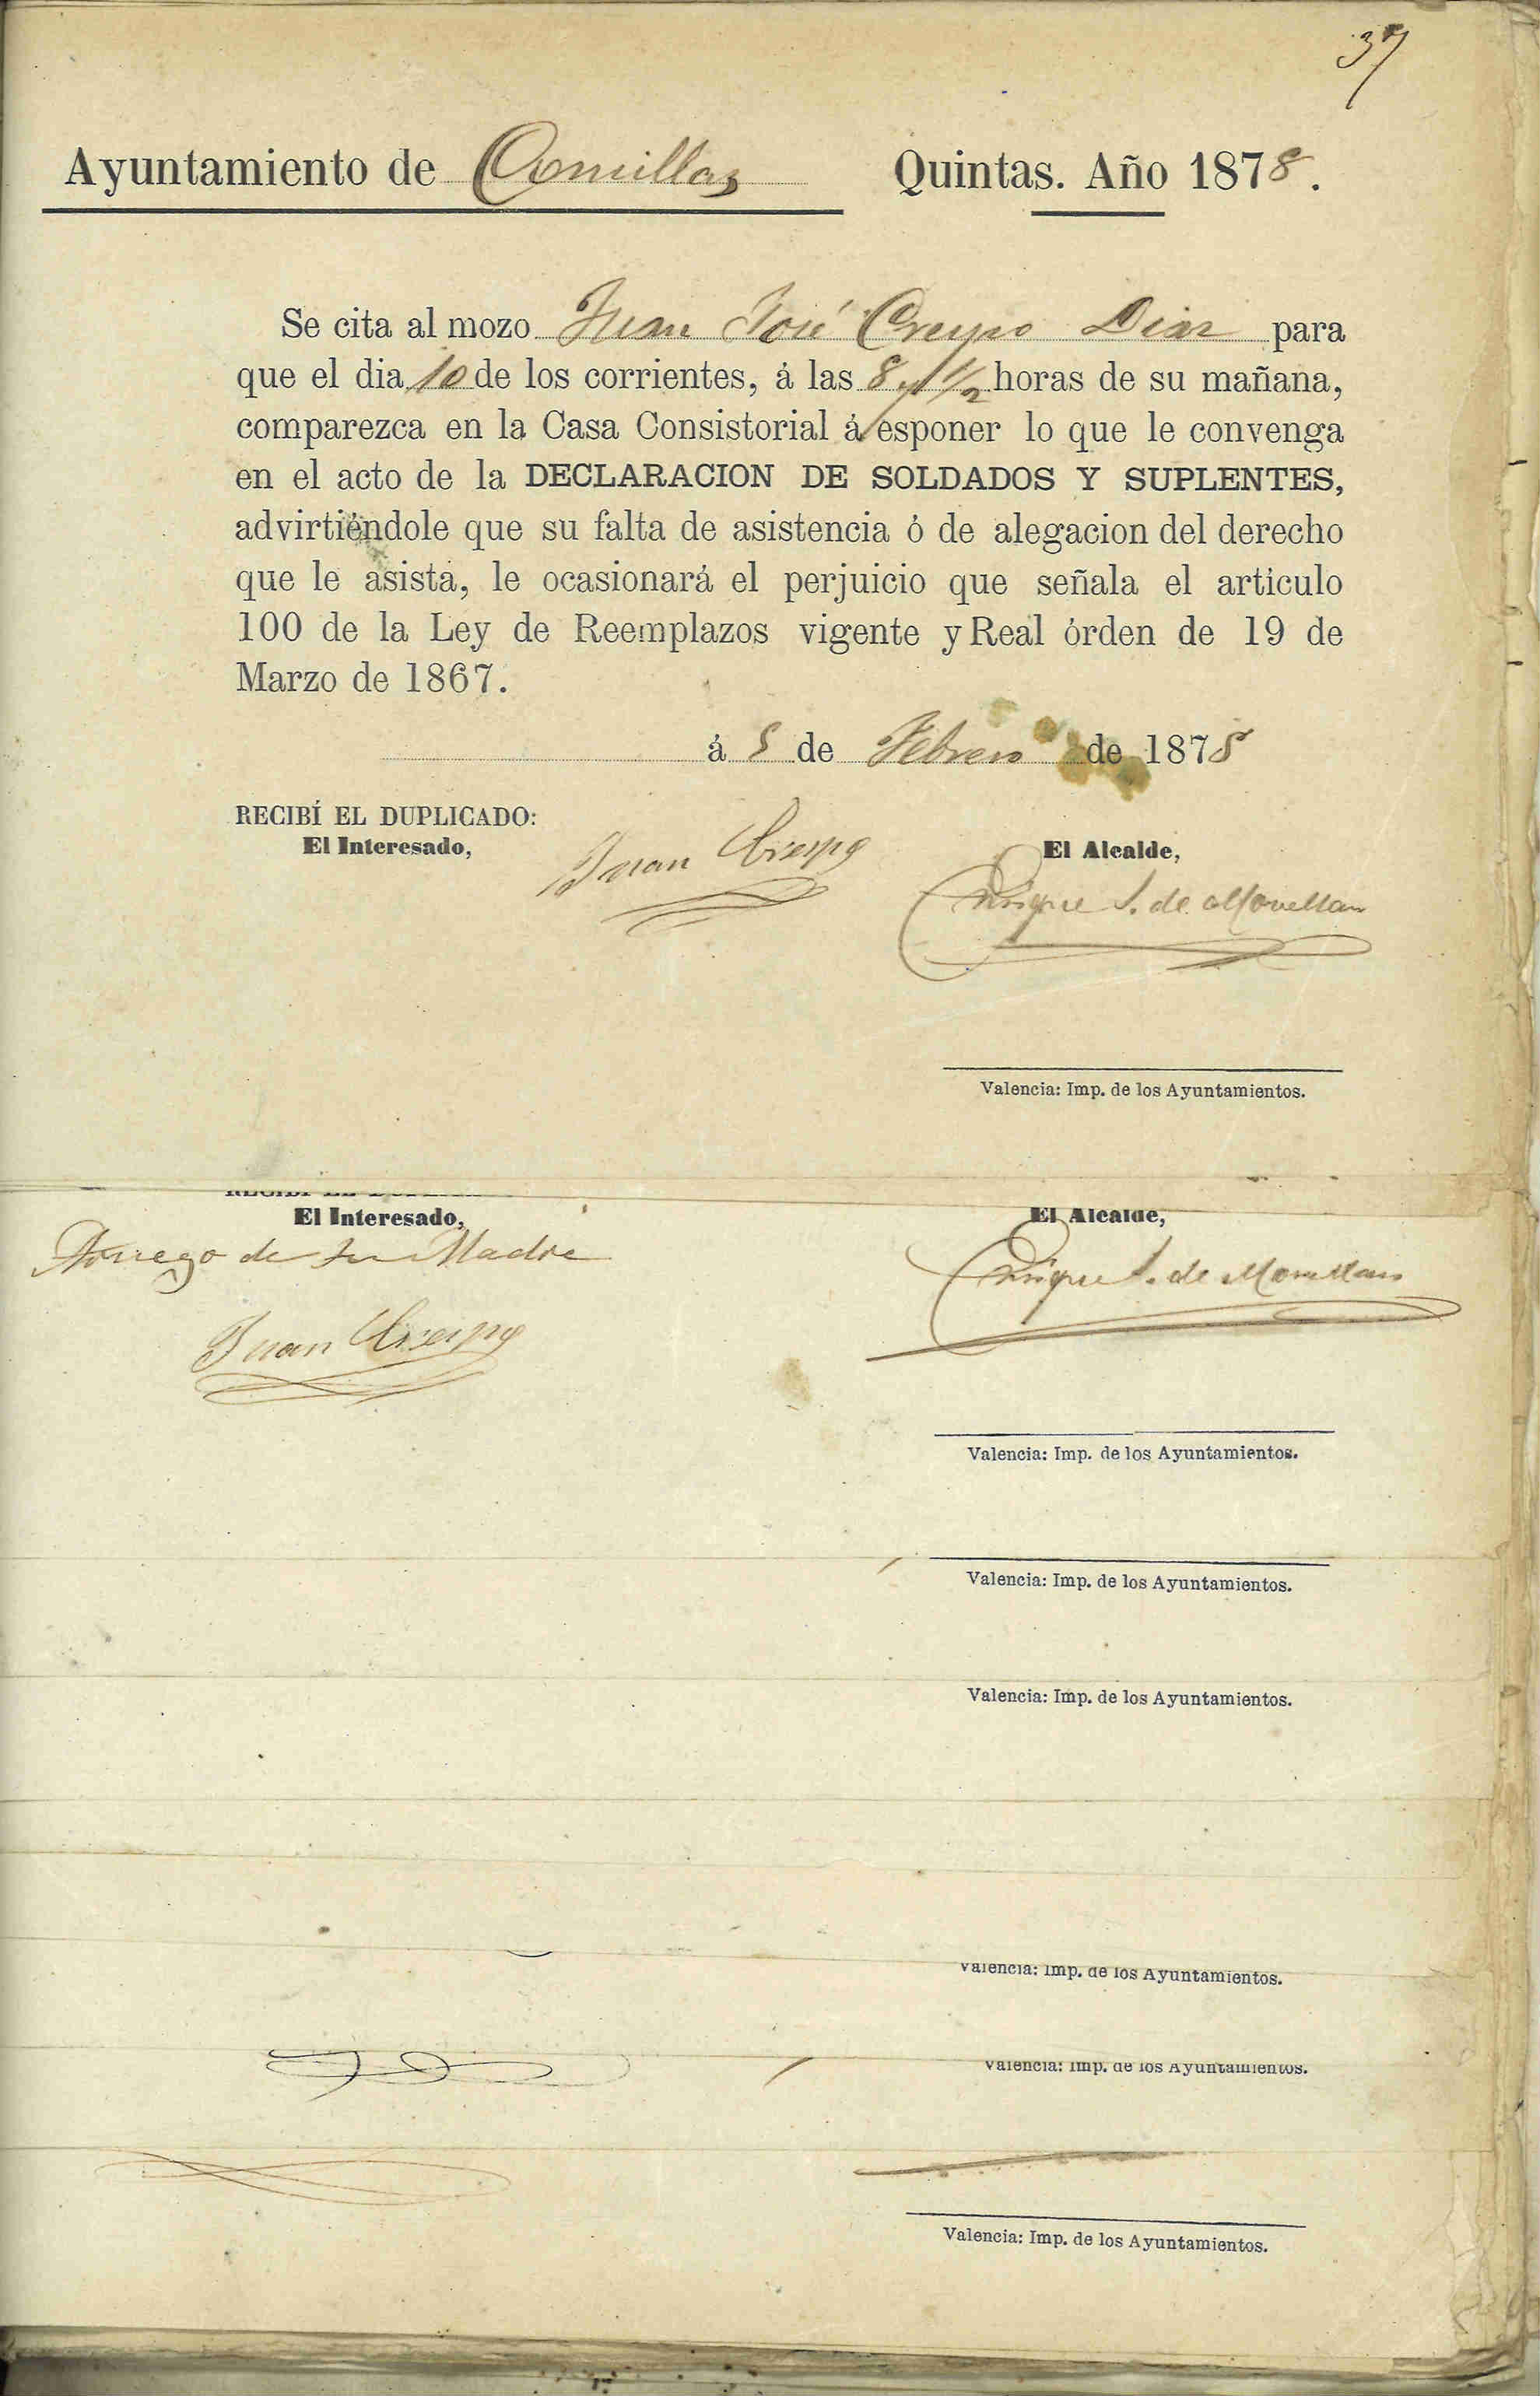 37
Ayuntamiento de Comillas Quintas. Año 1878.
Se cita al mozo Juan José Crespo Diaz para
que el dia 10 de los corrientes, á las 8 y 1/2 horas de su mañana,
comparezca en la Casa Consistorial á esponer lo que le convenga
en el acto de la DECLARACION DE SOLDADOS Y SUPLENTES,
advirtiéndole que su falta de asistencia ó de alegacion del derecho
que le asista, le ocasionará el perjuicio que señala el artículo
100 de la Ley de Reemplazos vigente y Real órden de 19 de
Marzo de 1867.
á 8 de Febrero de 1878
RECIBÍ EL DUPLICADO:
El Interesado,
El Alcalde,
Juan Crespo
Enrique S. de Movellan
Valencia: Imp. de los Ayuntamientos.
El Interesado,
El Alcalde,
A ruego de su Madre
Enrique S. de Movellan
Juan Crespo
Valencia: Imp. de los Ayuntamientos.
Valencia: Imp. de los Ayuntamientos.
Valencia: Imp. de los Ayuntamientos.
Valencia: Imp. de los Ayuntamientos.
Valencia: Imp. de los Ayuntamientos.
Valencia: Imp. de los Ayuntamientos.